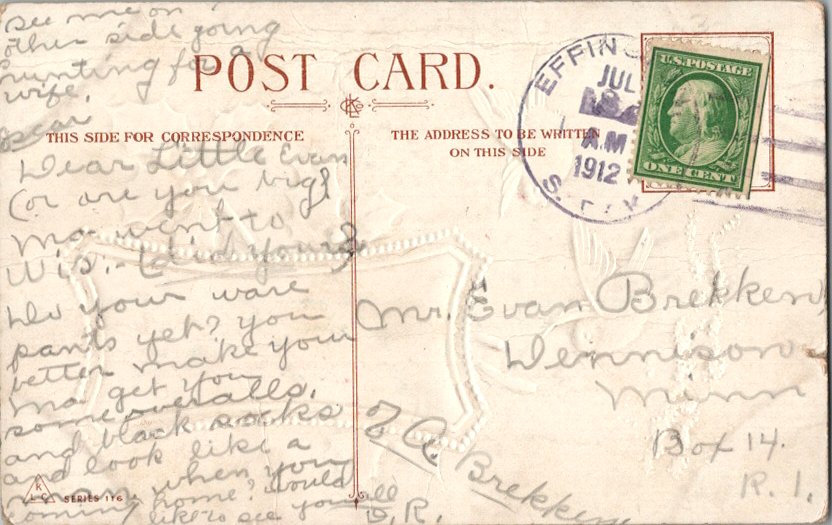 see me on
other side going
hunting for a
wife.
Oscar
POST CARD.
KLC
THIS SIDE FOR CORRESPONDENCE
THE ADDRESS TO BE WRITTEN
ON THIS SIDE
EFFING
JUL
A.M
1912
S.
U.S. POSTAGE
ONE CENT
Dear Little Evan
(or are you big)
ma went to
Wis. - did you?
Do your ware
pants yet? you
better make your
ma get you
some overalls.
and black socks
and look like a
man. when you
coming home? Would
like to see you all
Mr. Evan Brekken
Dennison
Minn
Box 14.
R. 1.
A Brekken
KLC
SERIES 116